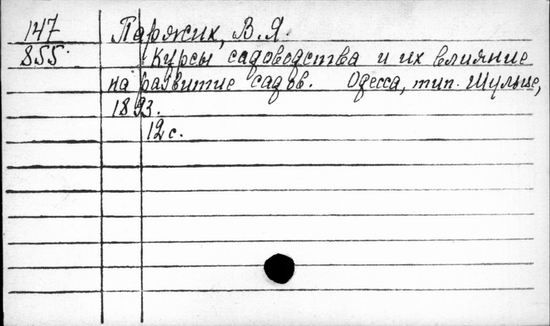 147 Паряжих, В. Я.
855. Курсы садоводства и их влияние
на развитие садов. Одесса, тип. Шульце,
1893.
12 с.